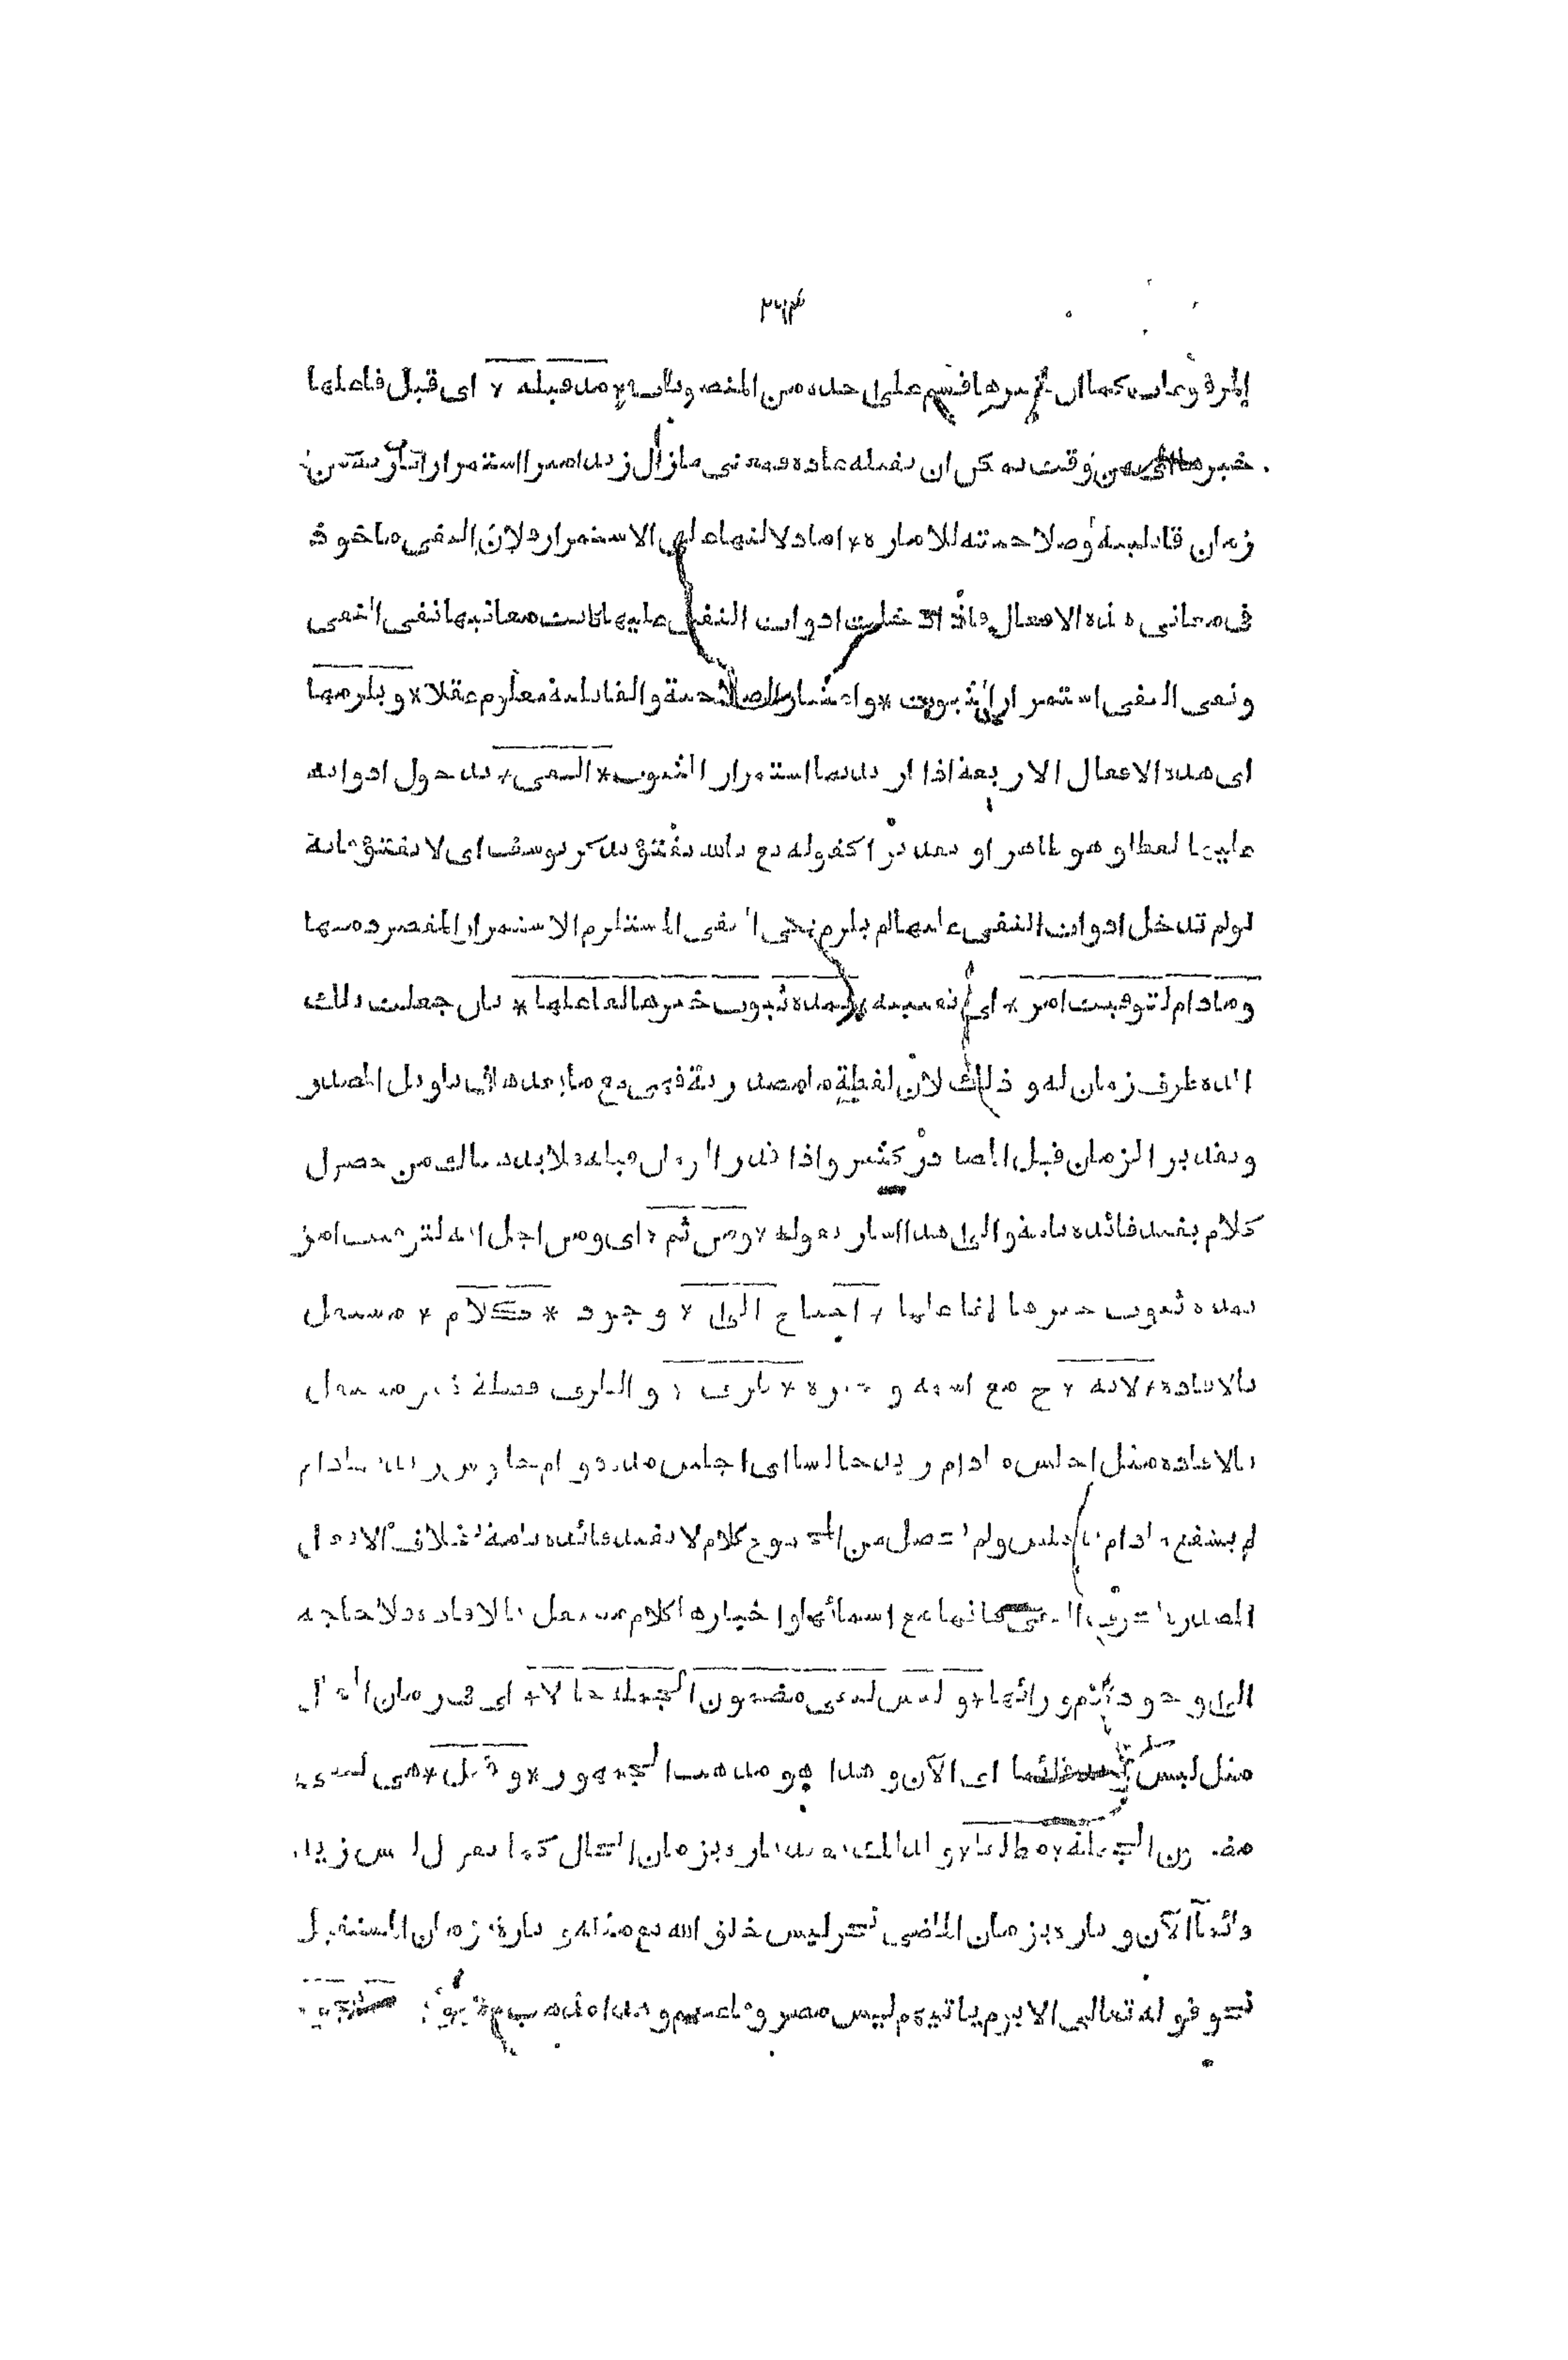 ٢٦٤
المرفوعات كما ان خبرها قسم على حده من المنصوبات * مذ قبله * اى قبل فاعلها
خبرها اى من وقت يمكن ان يقبله عادة فمعنى ما زال زيد اميرا استمرار امارته من
زمان قابليته وصلاحيته للامارة * اما دلالتها على الاستمرار فلان النفى ماخوذ
فى معانى هذه الافعال فاذا دخلت ادوات النفى عليها كانت معانيها نفى النفى
ونفى النفى استمرار الثبوت * واعتبار الصلاحية والقابلية معلوم عقلا * ويلزمها
اى هذه الافعال الاربعة اذا اريد بها استمرار الثبوت * النفى * بدخول ادواته
عليها لفظا وهو ظاهر او تقديرا كقوله تع تالله تفتؤ تذكر يوسف اى لا تفتؤ فانه
لو لم تدخل ادوات النفى عليها لم يلزم نفى النفى المستلزم الاستمرار المقصود منها
وما دام لتوقيت امر * اى تعيينه * بمدة ثبوت خبرها لفاعلها * بان جعلت تلك
المدة ظرف زمان له و ذلك لان لفظة ما مصدرية فهى مع ما بعدها فى تاويل المصدر
وتقدير الزمان قبل المصادر كثير واذا قدر الزمان قبله فلا بد هنالك من حصول
كلام يفيد فائدة تامة والى هذا اشار بقوله * ومن ثم * اى ومن اجل انه لتوقيت امر
بمدة ثبوت خبرها لفاعلها * احتاج الى * وجود * كلام * مستقل
بالافادة * لانه * ح مع اسمه و خبره * ظرف * و الظرف فضلة غير مستقل
بالافادة مثل اجلس ما دام زيد جالسا اى اجلس مدة دوام جلوس زيد ما دام
لم ينضم ما دام باجلس ولم يحصل من المجموع كلام لا يفيد فائدة تامة بخلاف الافعال
المصدرة بحرف النفى فانها مع اسمائها و اخبارها كلام مستقل بالافادة فلا حاجة
الى وجود كلام ورائها * و ليس لنفى مضمون الجملة حالا * اى فى زمان الحال
مثل ليس زيد قائما اى الآن و هذا هو مذهب الجمهور * و قيل * هى لنفى
مضمون الجملة * مطلقا * و لذلك يقيد تارة بزمان الحال كما تقول ليس زيد
قائما الآن و تارة بزمان الماضى نحو ليس خلق الله تع مثله و تارة بزمان المستقبل
نحو قوله تعالى الا يوم ياتيهم ليس مصروفا عنهم و هذا مذهب